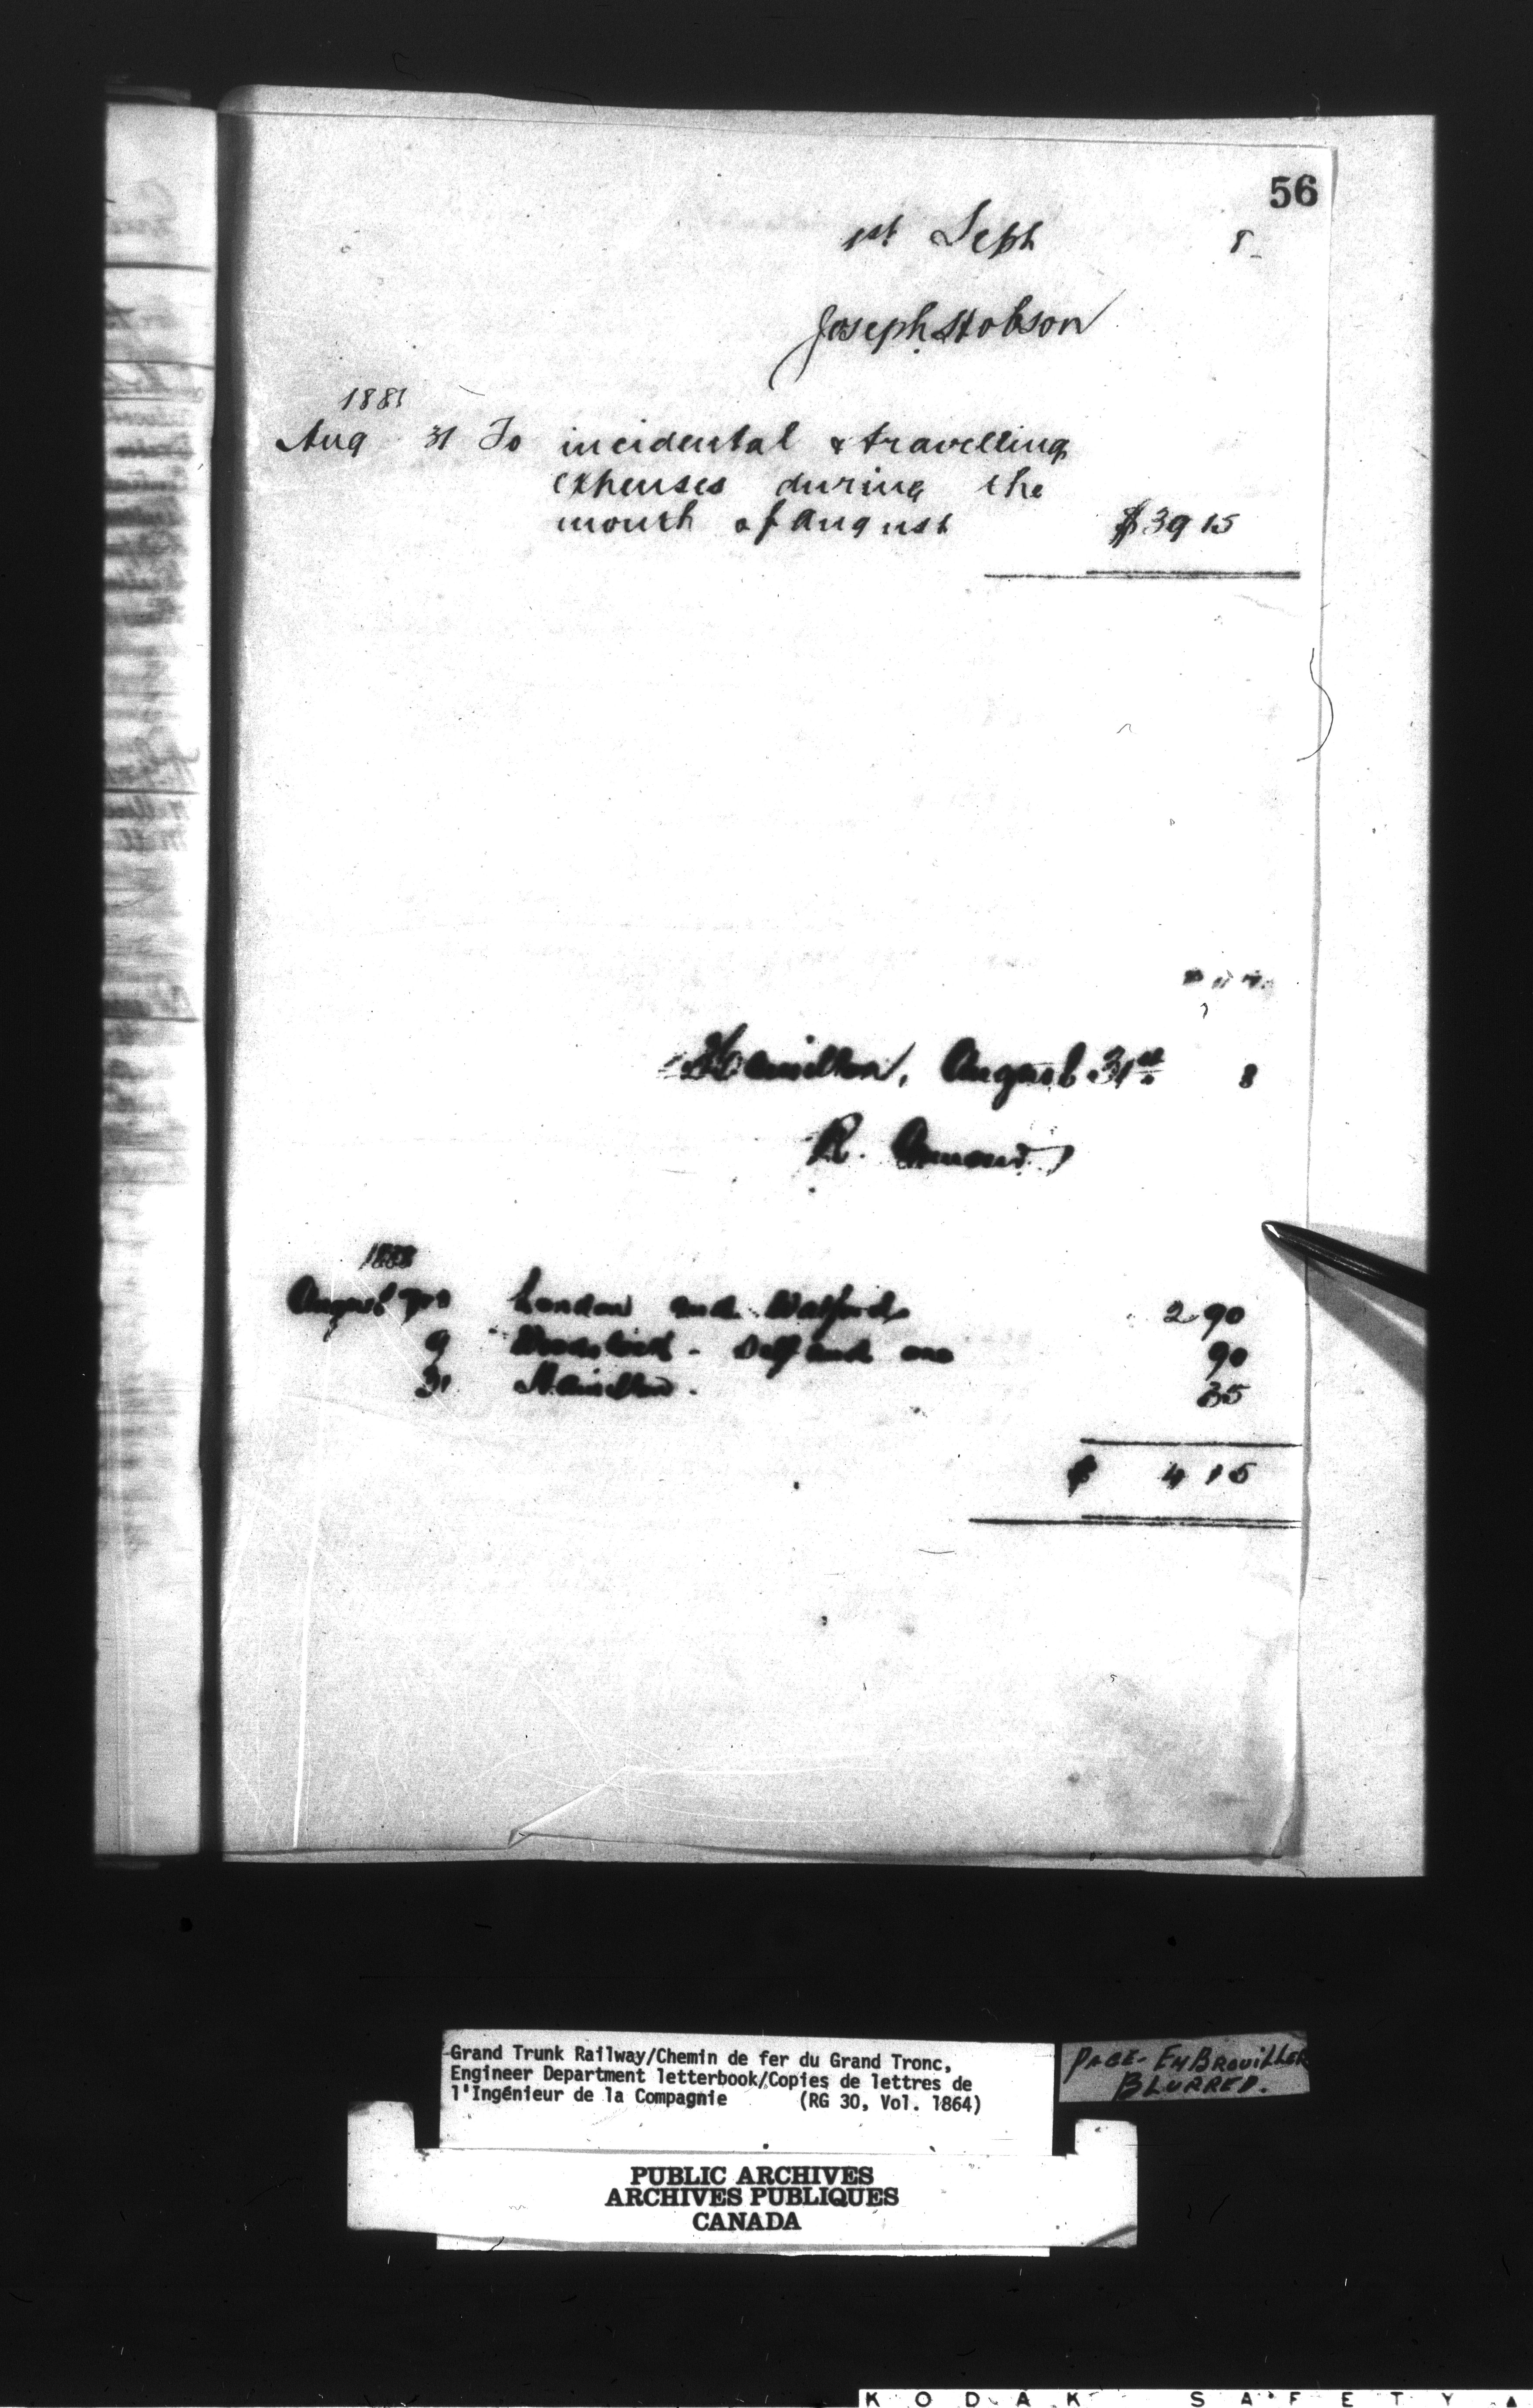 56
1st Sept 8
Joseph Hobson
1888
Aug 31 To incidental & travelling
expenses during the
month of August $39 15
Hamilton, August 31st 8
R.
1888
August London and Watford 2 90
9 Woodstock - Self and one 90
31 Hamilton. 35
$ 4 15
Grand Trunk Railway/Chemin de fer du Grand Tronc,
Engineer Department letterbook/Copies de lettres de
l'Ingénieur de la Compagnie (RG 30, Vol. 1864)
PAGE - EMBROUILLER
BLURRED.
PUBLIC ARCHIVES
ARCHIVES PUBLIQUES
CANADA
KODAK SAFETY